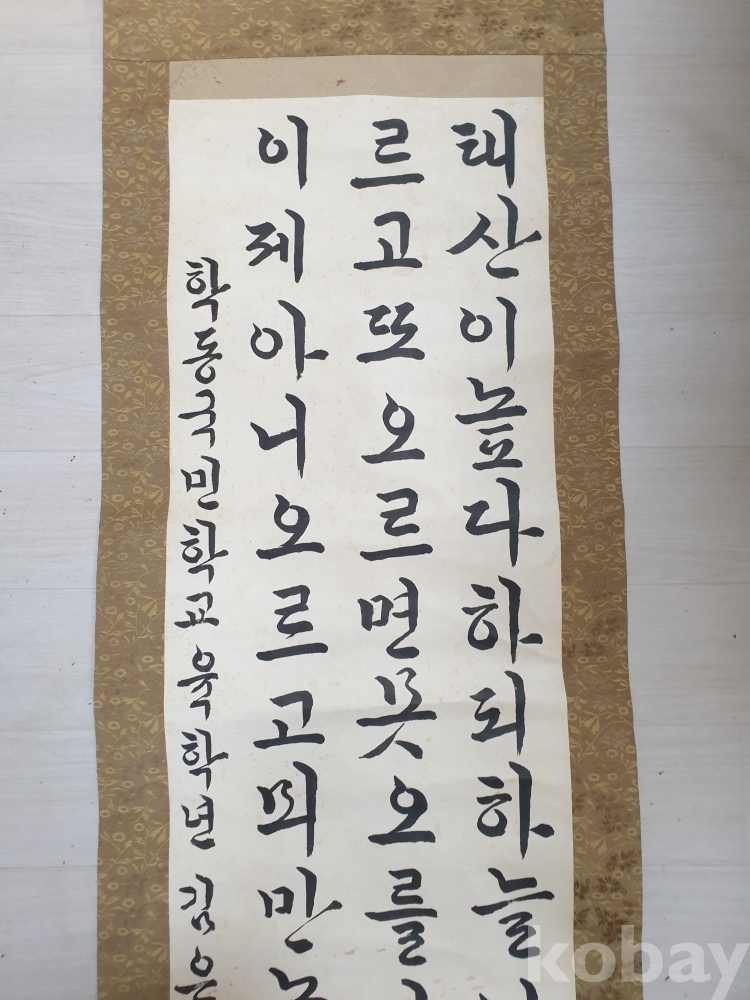 태산이높다하되하늘
르고또오르면못오를
이제아니오르고뫼만
학동국민학교육학년 김
kobay